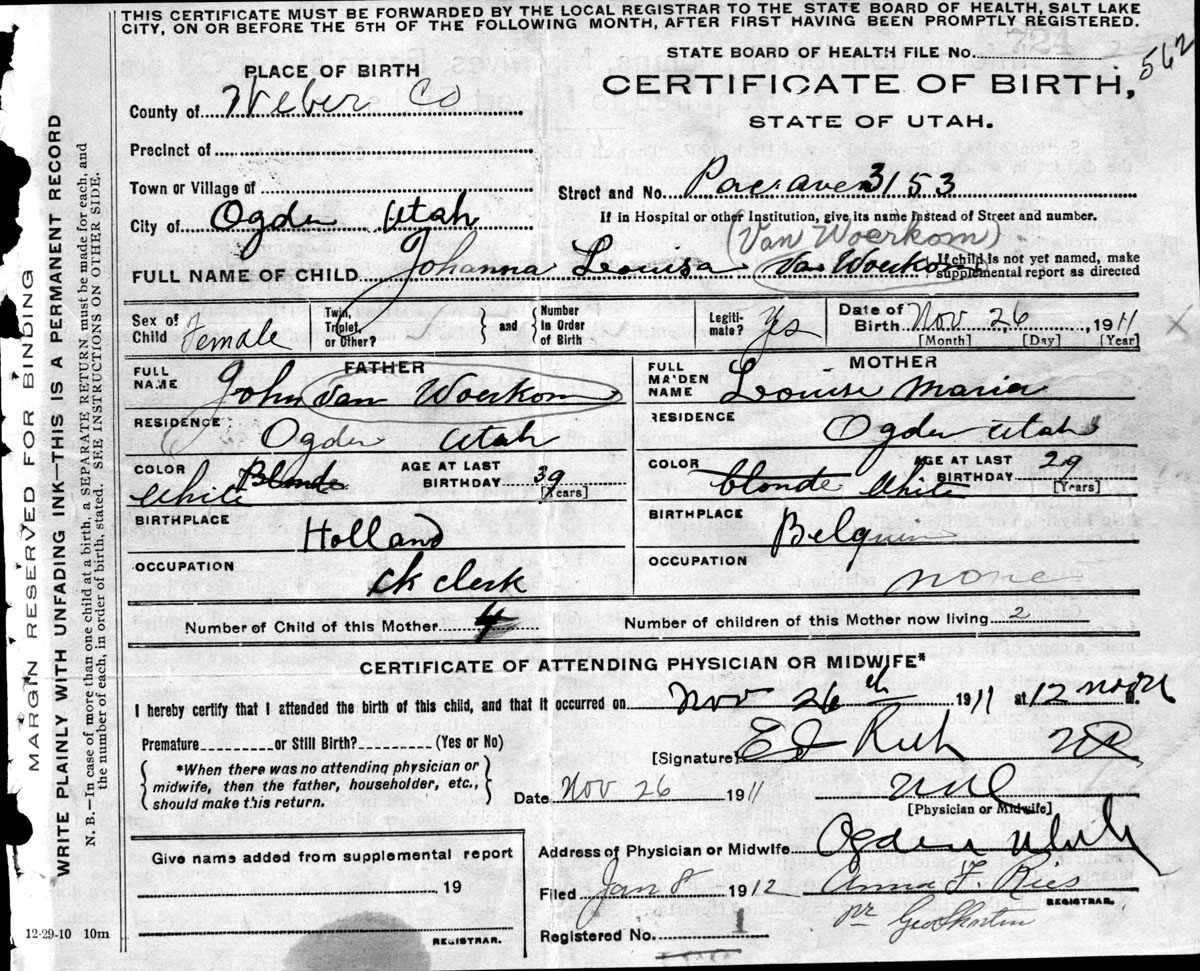 THIS CERTIFICATE MUST BE FORWARDED BY THE LOCAL REGISTRAR TO THE STATE BOARD OF HEALTH, SALT LAKE
CITY, ON OR BEFORE THE 5TH OF THE FOLLOWING MONTH, AFTER FIRST HAVING BEEN PROMPTLY REGISTERED.
STATE BOARD OF HEALTH FILE No. 562
PLACE OF BIRTH
CERTIFICATE OF BIRTH,
STATE OF UTAH.
County of Weber Co
Precinct of
Town or Village of
Street and No. 3153
City of Ogden Utah
If in Hospital or other Institution, give its name instead of Street and number.
(Van Woerkom)
FULL NAME OF CHILD Johanna Louisa Van Woerkom
If child is not yet named, make
supplemental report as directed
Sex of Child Female
Twin, Triplet, or Other?
and
Number In Order of Birth
Legiti-mate? Yes
Date of Birth Nov 26, 1911
[Month] [Day] [Year]
FATHER
FULL NAME John Van Woerkom
RESIDENCE Ogden Utah
COLOR White Blonde
AGE AT LAST BIRTHDAY 39
[Years]
BIRTHPLACE Holland
OCCUPATION ck clerk
MOTHER
FULL MAIDEN NAME Louise Maria
RESIDENCE Ogden Utah
COLOR blonde White
AGE AT LAST BIRTHDAY 29
[Years]
BIRTHPLACE Belguim
OCCUPATION none
Number of Child of this Mother 4
Number of children of this Mother now living 2
CERTIFICATE OF ATTENDING PHYSICIAN OR MIDWIFE*
I hereby certify that I attended the birth of this child, and that it occurred on Nov 26th 1911 at 12 noon M.
Premature or Still Birth? (Yes or No)
[Signature] Rich
*When there was no attending physician or
midwife, then the father, householder, etc.,
should make this return.
Date Nov 26 1911
[Physician or Midwife]
Give name added from supplemental report
19
REGISTRAR.
Address of Physician or Midwife Ogden Utah
Filed Jan 8 1912 Anna F. Ries
REGISTRAR.
Registered No. 1
12-29-10 10m
MARGIN RESERVED FOR BINDING
WRITE PLAINLY WITH UNFADING INK—THIS IS A PERMANENT RECORD
N. B.—In case of more than one child at a birth, a SEPARATE RETURN must be made for each, and
the number of each, in order of birth, stated. SEE INSTRUCTIONS ON OTHER SIDE.